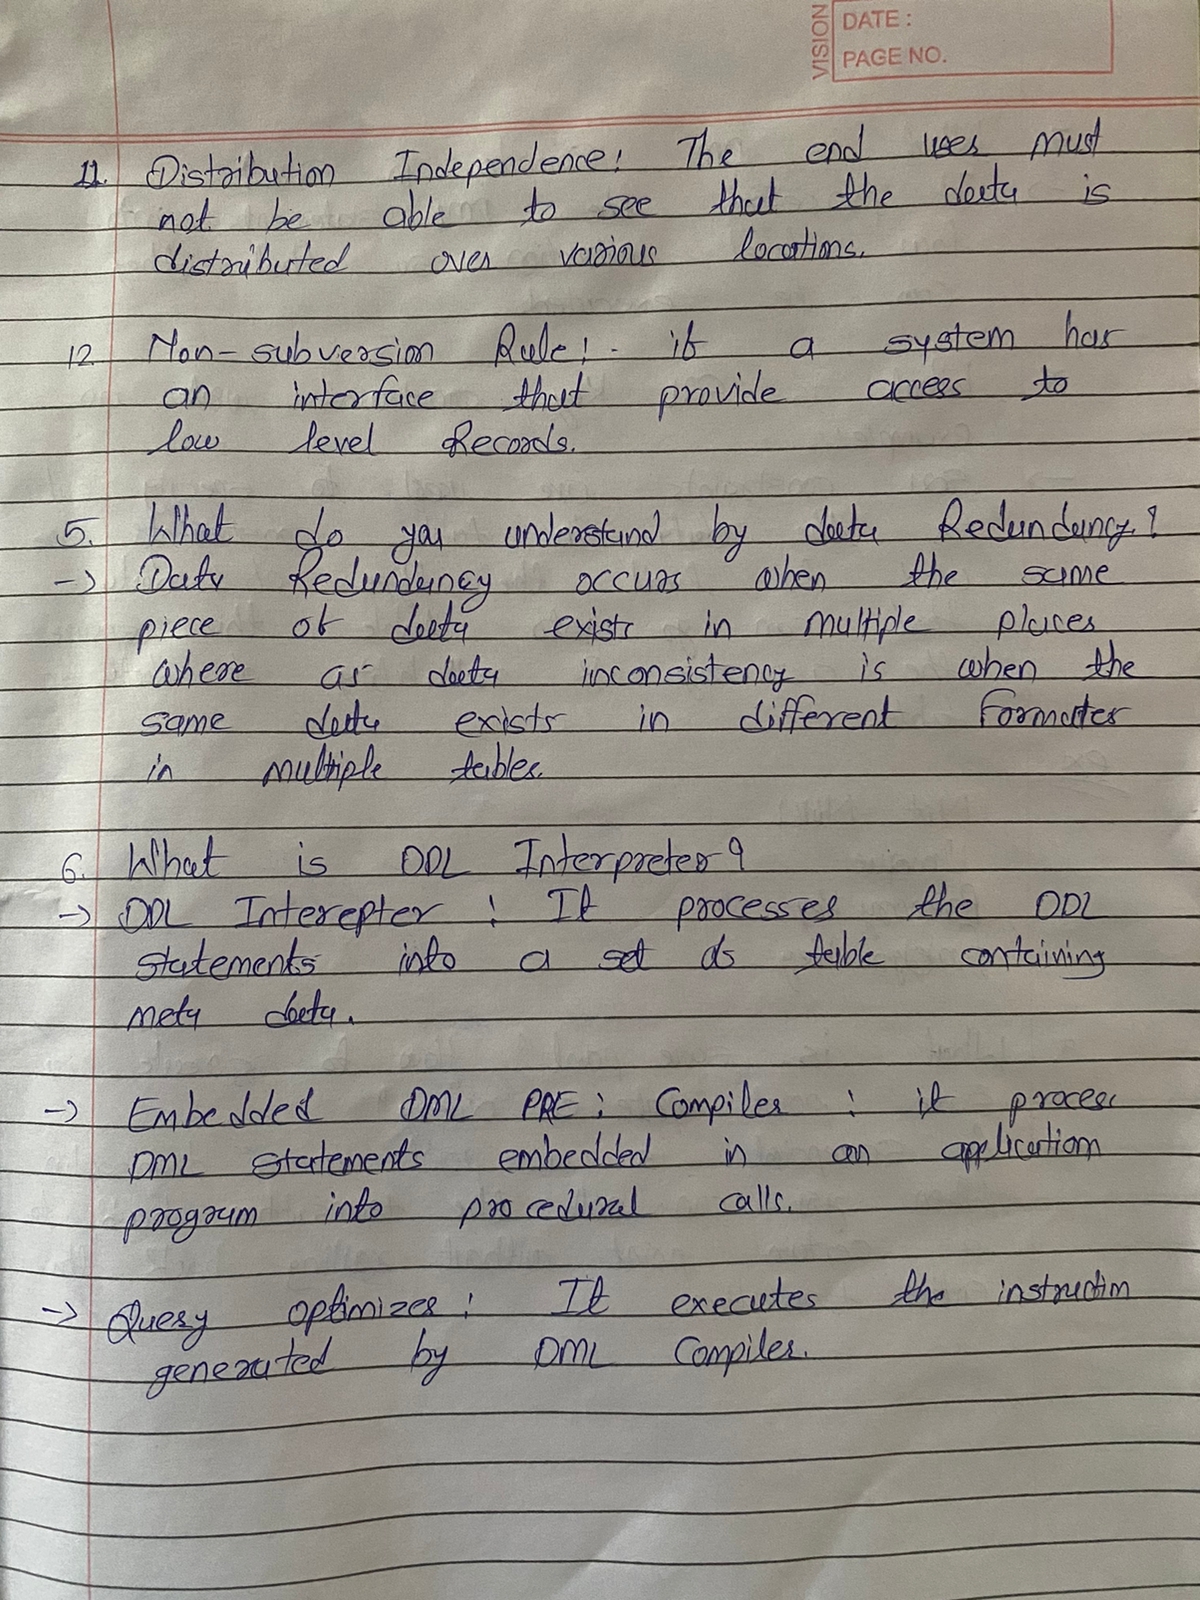 VISION
DATE :
PAGE NO.
11. Distribution Independence: The end user must
not be able to see that the data is
distributed over various locations.
12 Non-subversion Rule:- if a system has
an interface that provide access to
low level Records.
5. What do you understand by data Redundancy?
-> Data Redundancy occurs when the same
piece of data exists in multiple places
where as data inconsistency is when the
same data exists in different Formates
in multiple tables.
6. What is DDL Interpreter?
-> DDL Interepter : It processes the DDL
statements into a set of table containing
meta data.
-> Embedded DML PRE: Compiler : it process
DML statements embedded in an application
program into procedural calls.
-> Query optimizer: It executes the instruction
generated by DML Compiler.